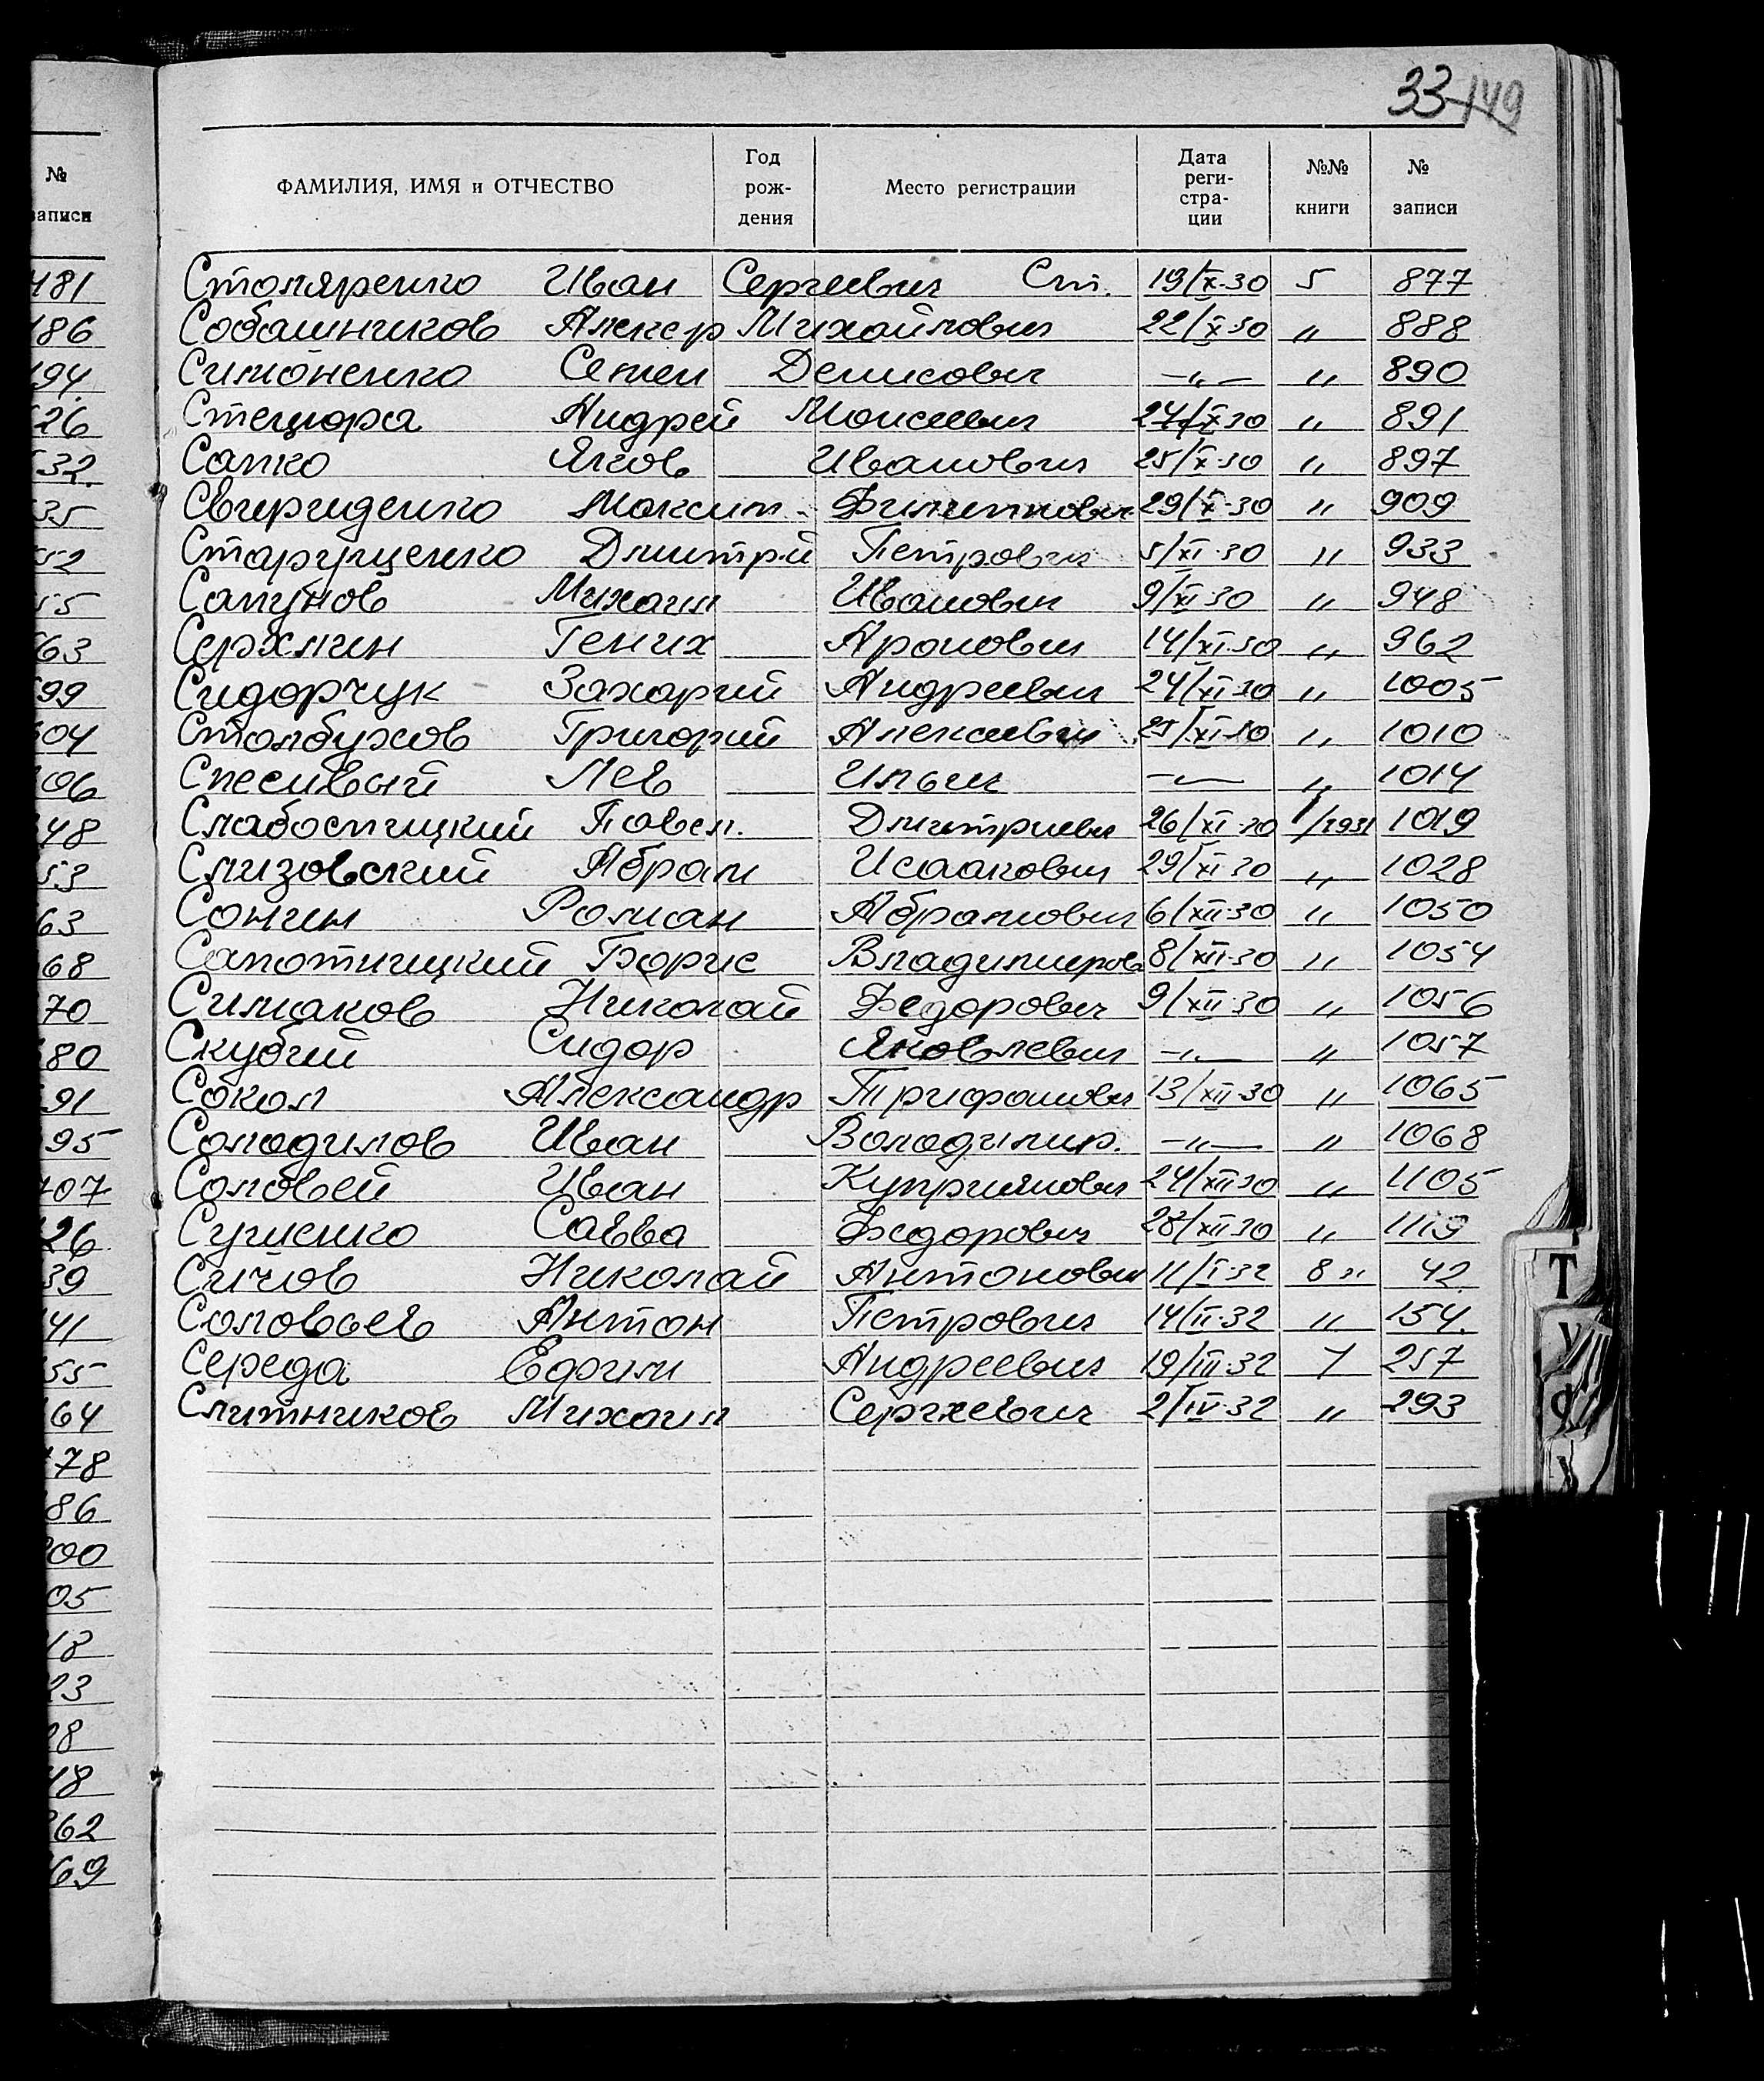 33 149
№ записи
ФАМИЛИЯ, ИМЯ и ОТЧЕСТВО Год рож- дения Место регистрации Дата реги- стра- ции №№ книги № записи
Столяренко Иван Сергеевич Ст. 19/X-30 5 877
Собашников Алекср Михайлович 22/X-30 " 888
Симоненко Семен Денисович —"— " 890
Стецюра Андрей Моисеевич 24/X-30 " 891
Сапко Яков Иванович 25/X-30 " 897
Свириденко Максим Филиппович 29/X-30 " 909
Старущенко Дмитрий Петрович 5/XI-30 " 933
Сапунов Михаил Иванович 9/XI-30 " 948
Гених Аронович 14/XI-30 " 962
Сидорчук Захарий Андреевич 24/XI-30 " 1005
Столбухов Григорий Алексеевич 25/XI-30 " 1010
Спесивый Лев Ильич —"— " 1014
Слабоспицкий Павел. Дмитриевич 26/XI-30 /1931 1019
Слизовский Абрам Исаакович 29/XI-30 " 1028
Сонин Роман Абрамович 6/XII-30 " 1050
Сапотницкий Борис Владимиров 8/XII-30 " 1054
Симаков Николай Федорович 9/XII-30 " 1056
Скубий Сидор Яковлевич —"— " 1057
Сокол Александр Трифонович 13/XII-30 " 1065
Солодилов Иван Володимир. —"— " 1068
Соловей Иван Куприянович 24/XII-30 " 1105
Сушенко Савва Федорович 28/XII-30 " 1119
Сичов Николай Антонович 11/I-32 8 " 42
Соловьев Антон Петрович 14/II-32 " 154.
Середа Ефим Андреевич 19/III-32 7 257
Слитников Михаил Сергеевич 2/IV-32 " 293
Т
У
Ф
Х